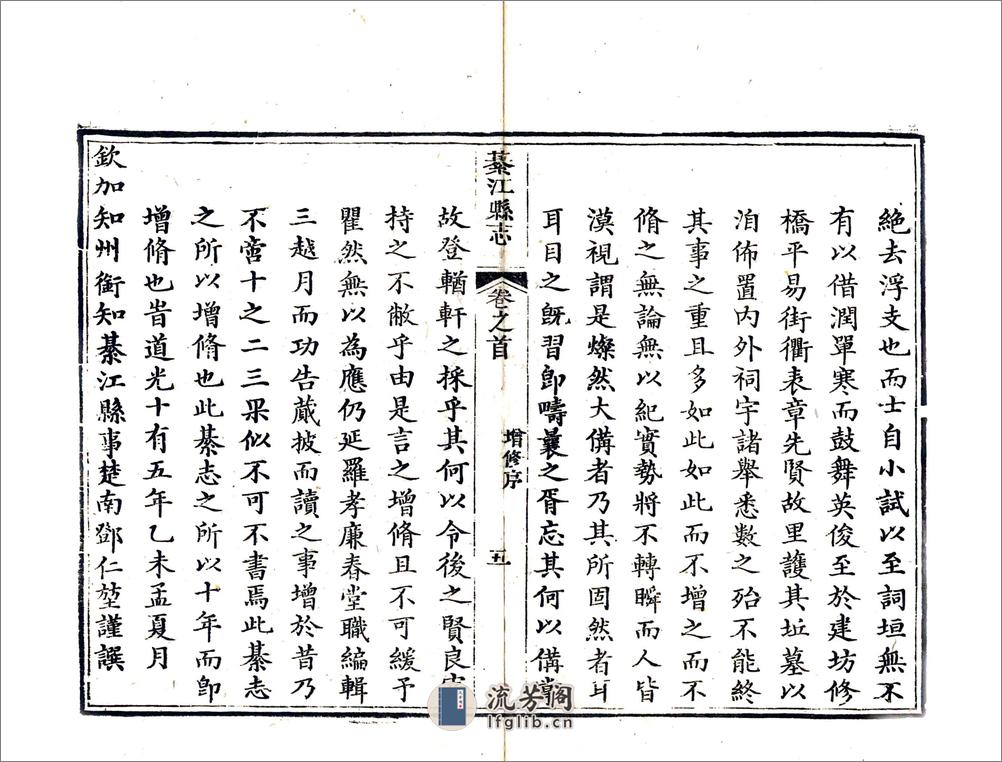 絶去浮支也而士自小試以至詞垣無不
有以借潤單寒而鼓舞英俊至於建坊修
橋平易街衢表章先賢故里護其坵墓以
洎佈置內外祠宇諸舉悉數之殆不能終
其事之重且多如此如此而不增之而不
脩之無論無以紀實勢將不轉瞬而人皆
漠視謂是燦然大僃者乃其所固然者耳
耳目之旣習卽疇曩之胥忘其何以僃掌
綦江縣志
卷之首
增修序
五
故登輶軒之採乎其何以令後之賢良守
持之不敝乎由是言之增脩且不可緩予
瞿然無以為應仍延羅孝廉春堂職編輯
三越月而功告蕆披而讀之事增於昔乃
不啻十之二三果似不可不書焉此綦志
之所以增脩也此綦志之所以十年而卽
增脩也旹道光十有五年乙未孟夏月
欽加知州銜知綦江縣事楚南鄧仁堃謹譔
流芳閣
lfglib.cn